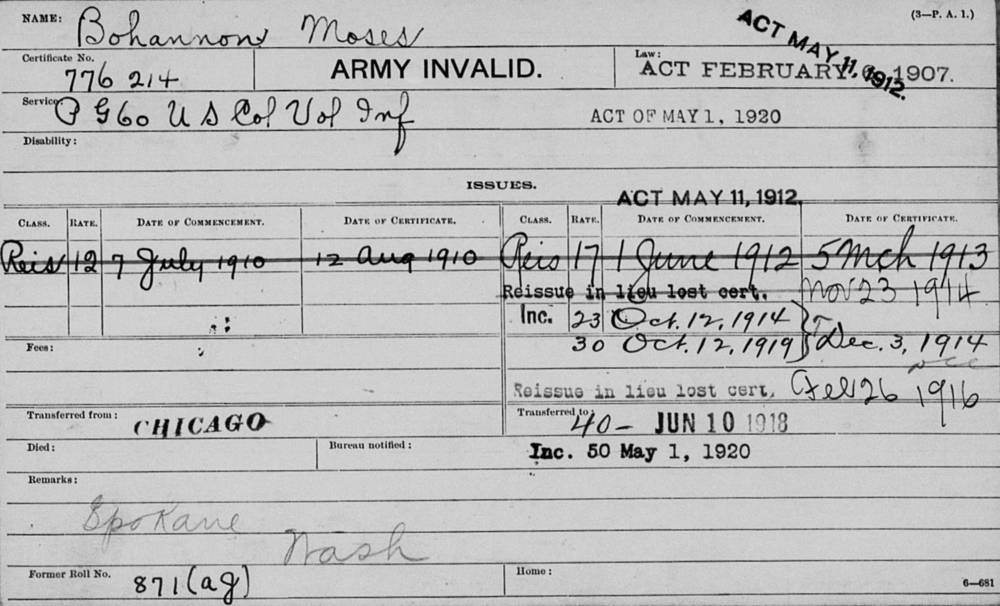 (3—P. A. 1.)
NAME: Bohannon, Moses
ACT MAY 11, 1912.
Certificate No. 776 214
ARMY INVALID.
Law: ACT FEBRUARY 6, 1907.
Service: P G 60 U S Col Vol Inf
ACT OF MAY 1, 1920
Disability:
ISSUES.
ACT MAY 11, 1912.
CLASS. RATE. DATE OF COMMENCEMENT. DATE OF CERTIFICATE. CLASS. RATE. DATE OF COMMENCEMENT. DATE OF CERTIFICATE.
Reis 12 7 July 1910 12 Aug 1910 Reis 17 1 June 1912 5 Mch 1913
Reissue in lieu lost cert. Nov 23 1914
Inc. 23 Oct. 12, 1914
Fees: 30 Oct. 12, 1919 Dec. 3, 1914
Reissue in lieu lost cert, Feb 26 1916
Transferred from: CHICAGO
Transferred to 40— JUN 10 1918
Died: Bureau notified: Inc. 50 May 1, 1920
Remarks:
Spokane
Wash
Former Roll No. 871 (ag)
Home:
6—681